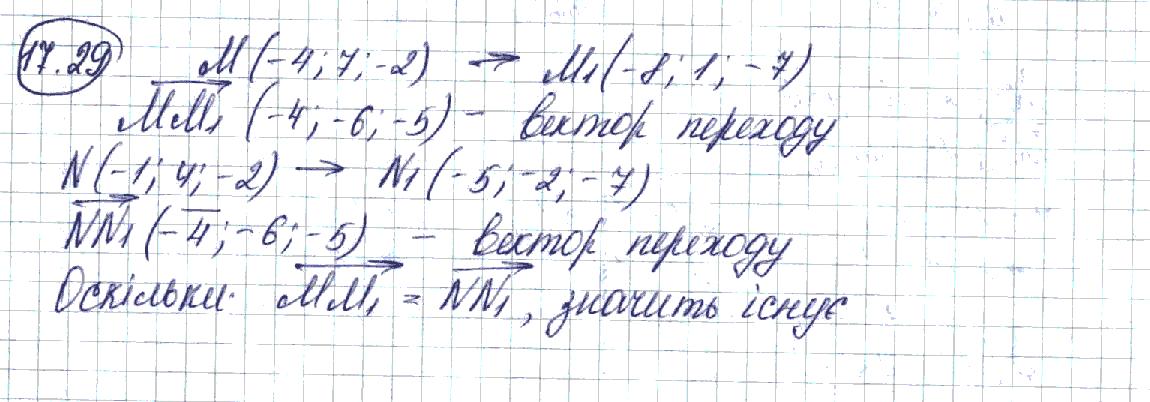 17.29 M(-4; 7; -2) → M₁(-8; 1; -7)
MM₁ (-4; -6; -5) - вектор переходу
N(-1; 4; -2) → N₁(-5; -2; -7)
NN₁ (-4; -6; -5) - вектор переходу
Оскільки MM₁ = NN₁, значить існує